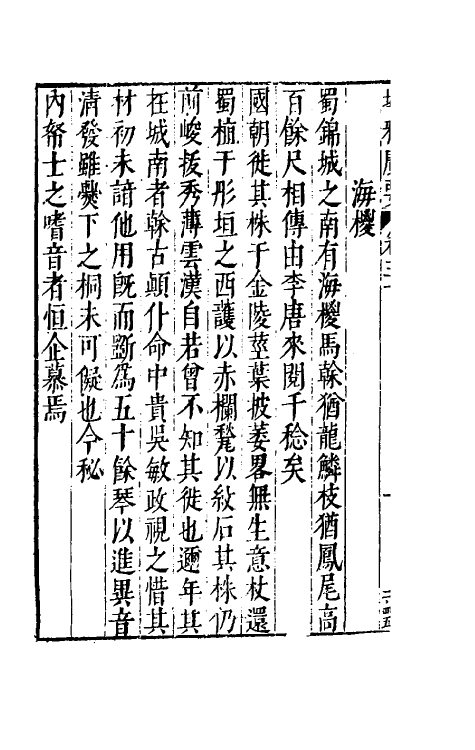 海椶
蜀錦城之南有海椶焉榦猶龍鱗枝猶鳳尾高
百餘尺相傳由李唐來閱千稔矣
國朝徙其株于金陵莖葉披萎畧無生意杖還
蜀植于彤垣之西護以赤欄甃以紋石其株仍
前峻拔秀薄雲漢自若曾不知其徙也邇年其
在城南者榦古顛仆命中貴吳敏政視之惜其
材初未諳他用既而斲爲五十餘琴以進異音
清發雖爨下之桐未可儗也今秘
內帑士之嗜音者恒企慕焉